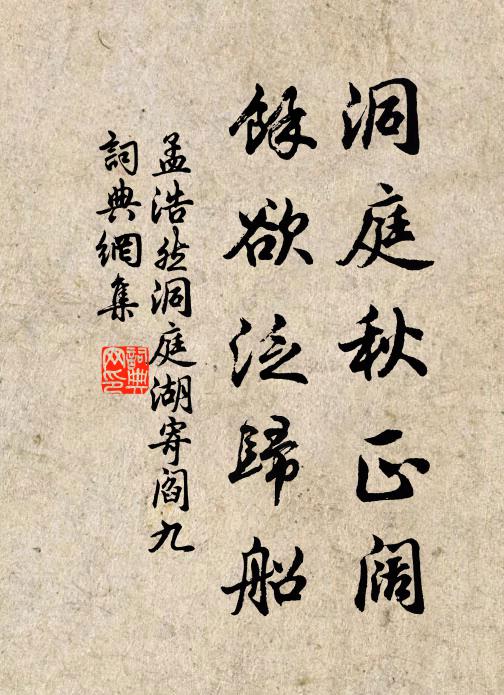 洞庭秋正闊
餘欲泛歸船
孟浩然洞庭湖寄閻九
詞典網集
詞典
网印